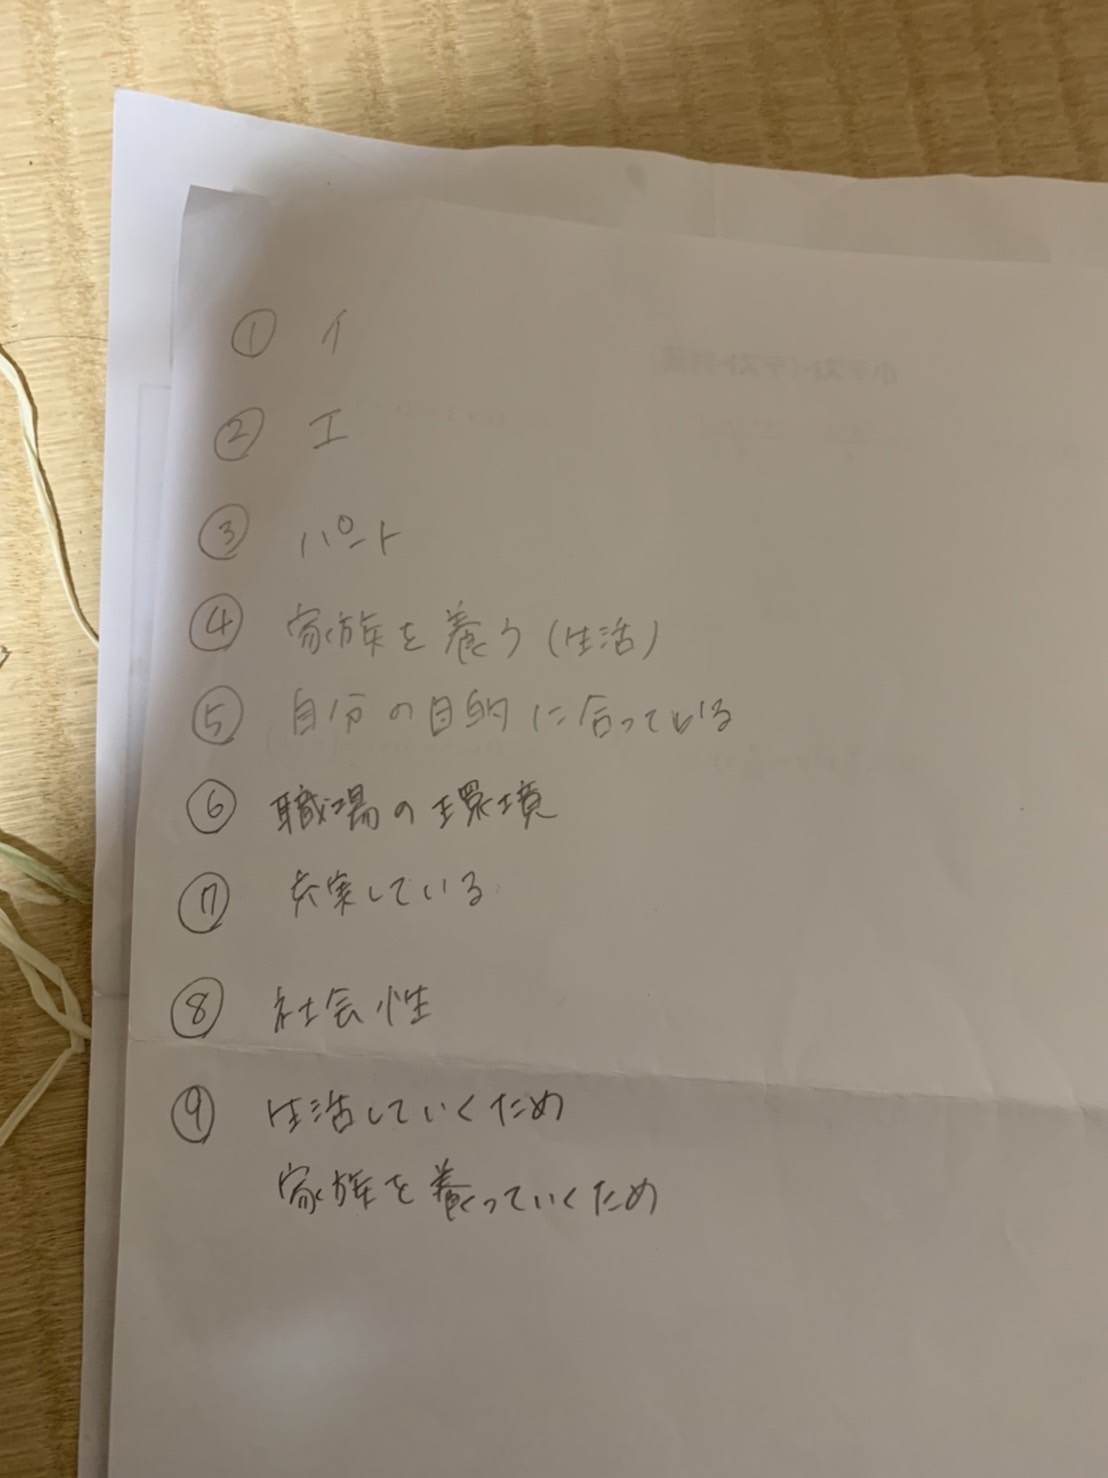 ① イ
② エ
③ パート
④ 家族を養う(生活)
⑤ 自分の目的に合っている
⑥ 職場の環境
⑦ 充実している
⑧ 社会性
⑨ 生活していくため
家族を養っていくため